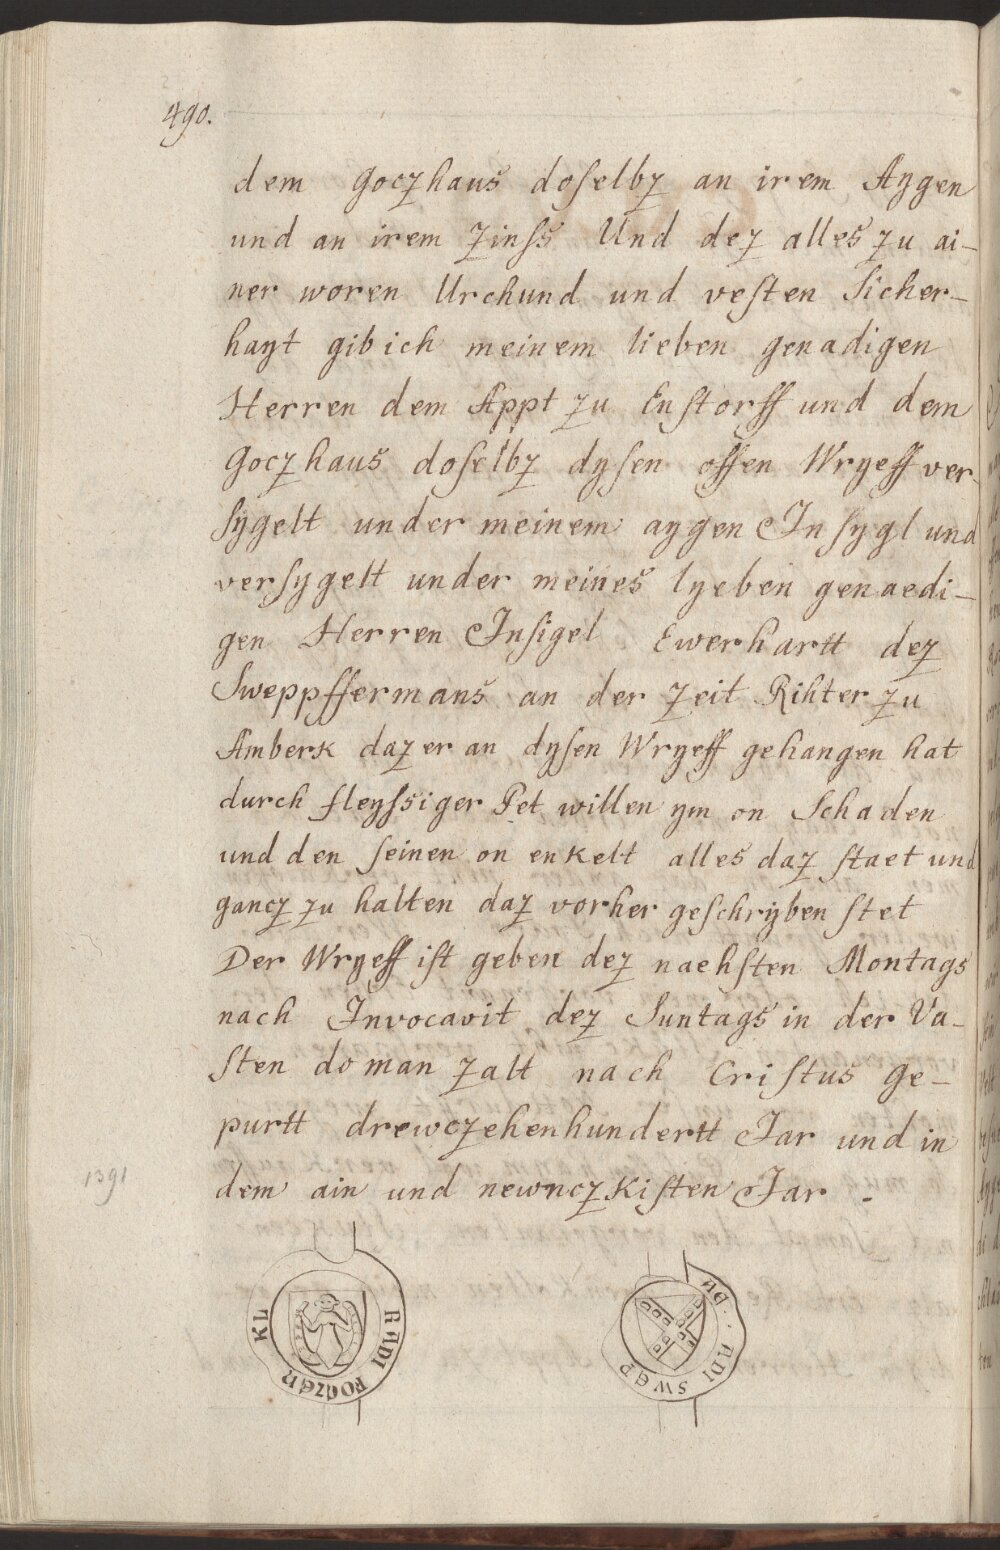 490.
dem Goczhaus doselbz an irem Aygen
und an irem zinss Und dez alles zu ai-
ner woren Urchund und vesten Sicher-
hayt gib ich meinem lieben genadigen
Herren dem Appt zu Enstorff und dem
Goczhaus doselbz dysen offen Wryeff ver-
sygelt under meinem aygen Insygl und
versygelt under meines lyeben genaedi-
gen Herren Insigel Ewerhartt dez
Sweppffermans an der zeit Rihter zu
Amberk daz er an dysen Wryeff gehangen hat
durch fleyssiger Pet willen ym on Schaden
und den seinen on enkelt alles daz staet und
gancz zu halten daz vorher geschryben stet
Der Wryeff ist geben dez naehsten Montags
nach Invocavit dez Suntags in der Va-
sten do man zalt nach Cristus Ge-
purtt drewczehenhundertt Jar und in
1391
dem ain und newnczkisten Jar -
KL RADI
ADI SWEP